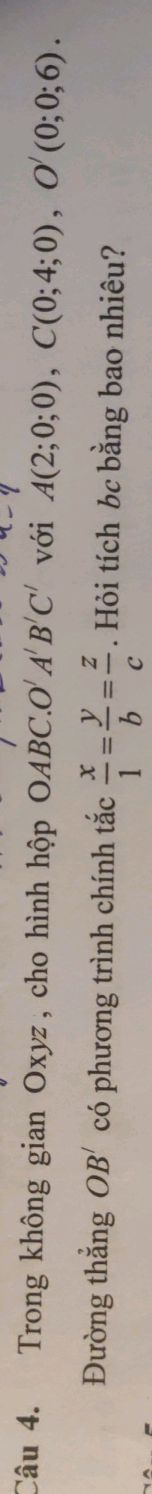 Câu 4. Trong không gian Oxyz, cho hình hộp OABC.O'A'B'C' với A(2;0;0), C(0;4;0), O'(0;0;6).
Đường thẳng OB' có phương trình chính tắc x/1 = y/b = z/c. Hỏi tích bc bằng bao nhiêu?